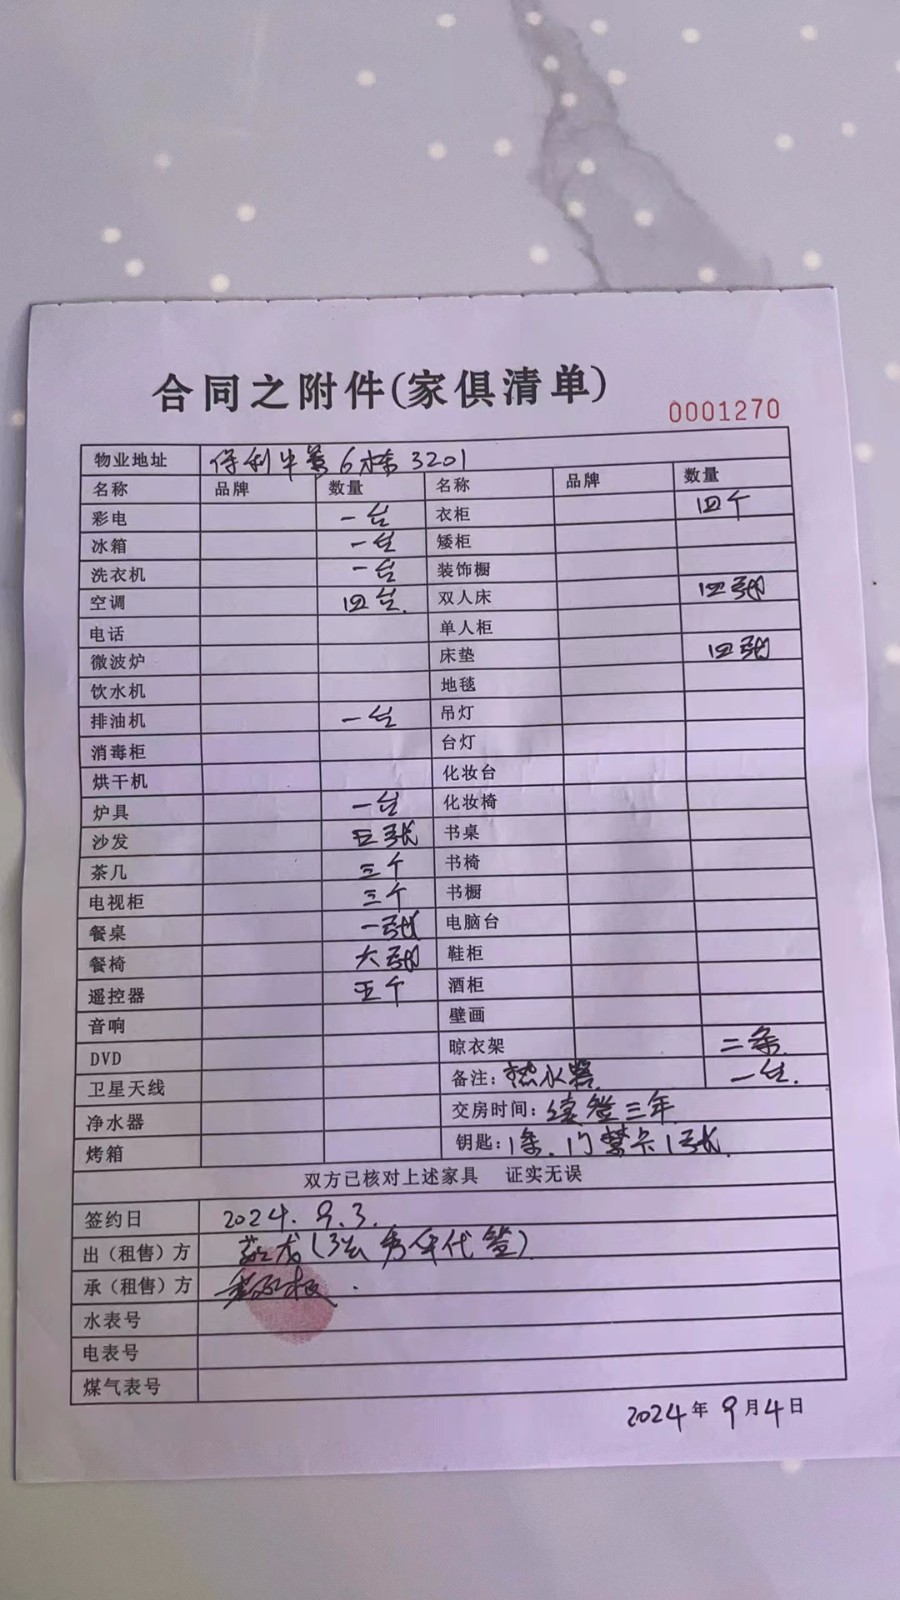 合同之附件(家俱清单)
0001270
物业地址 保利 6栋3201
名称 品牌 数量 名称 品牌 数量
彩电 一台 衣柜 四个
冰箱 一台 矮柜
洗衣机 一台 装饰橱
空调 四台. 双人床 四张
电话 单人柜
微波炉 床垫 四张
饮水机 地毯
排油机 一台 吊灯
消毒柜 台灯
烘干机 化妆台
炉具 一台 化妆椅
沙发 五张 书桌
茶几 三个 书椅
电视柜 三个 书橱
餐桌 一张 电脑台
餐椅 六张 鞋柜
遥控器 五个 酒柜
音响 壁画
DVD 晾衣架 二条.
卫星天线 备注:热水器. 一台.
净水器 交房时间:续签三年
烤箱 钥匙:1条.门禁卡1张.
双方已核对上述家具 证实无误
签约日 2024. 9.3.
出（租售）方 代签)
承（租售）方
水表号
电表号
煤气表号
2024年9月4日